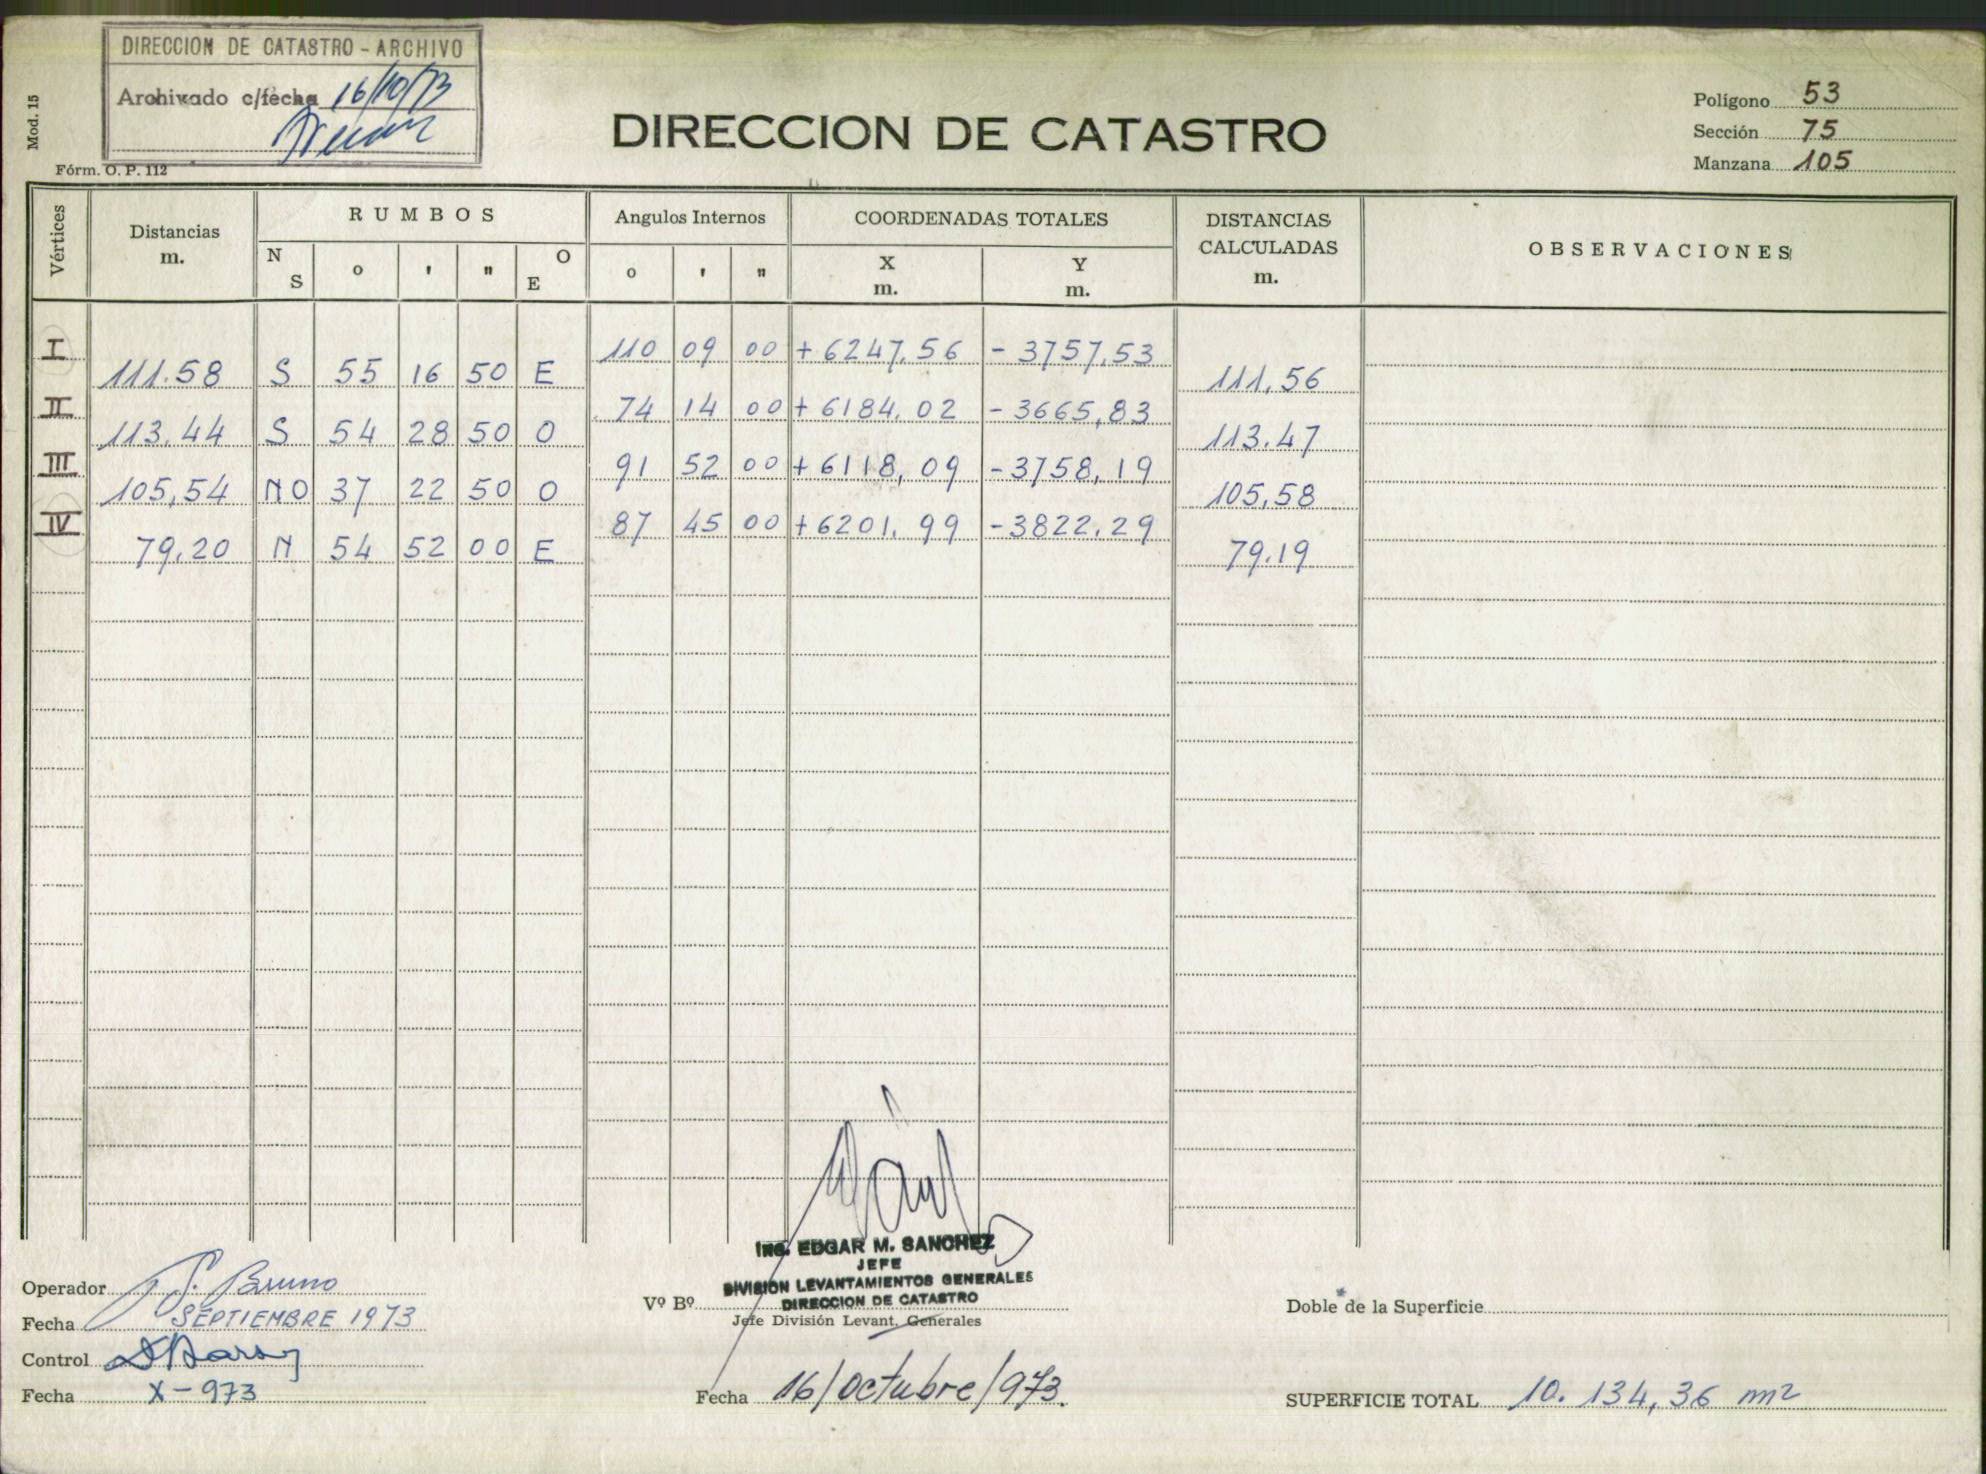 DIRECCION DE CATASTRO - ARCHIVO
Archivado c/fecha 16/10/73
Mod. 15
Fórm. O. P. 112
DIRECCION DE CATASTRO
Polígono 53
Sección 75
Manzana 105
Vértices Distancias m. RUMBOS Angulos Internos COORDENADAS TOTALES DISTANCIAS CALCULADAS m. OBSERVACIONES
N S o ' " O E o ' " X m. Y m.
I 110 09 00 + 6247,56 - 3757,53
111.58 S 55 16 50 E 111,56
II 74 14 00 + 6184.02 - 3665,83
113.44 S 54 28 50 O 113.47
III 91 52 00 + 6118,09 - 3758,19
105,54 NO 37 22 50 O 105,58
IV 87 45 00 + 6201,99 - 3822,29
79,20 N 54 52 00 E 79.19
Operador Bruno
Fecha SEPTIEMBRE 1973
Control
Fecha X-973
Ing. EDGAR M. SANCHEZ
JEFE
DIVISION LEVANTAMIENTOS GENERALES
DIRECCION DE CATASTRO
Vº Bº
Jefe División Levant. Generales
Fecha 16/octubre/973.
Doble de la Superficie
SUPERFICIE TOTAL 10.134,36 m2